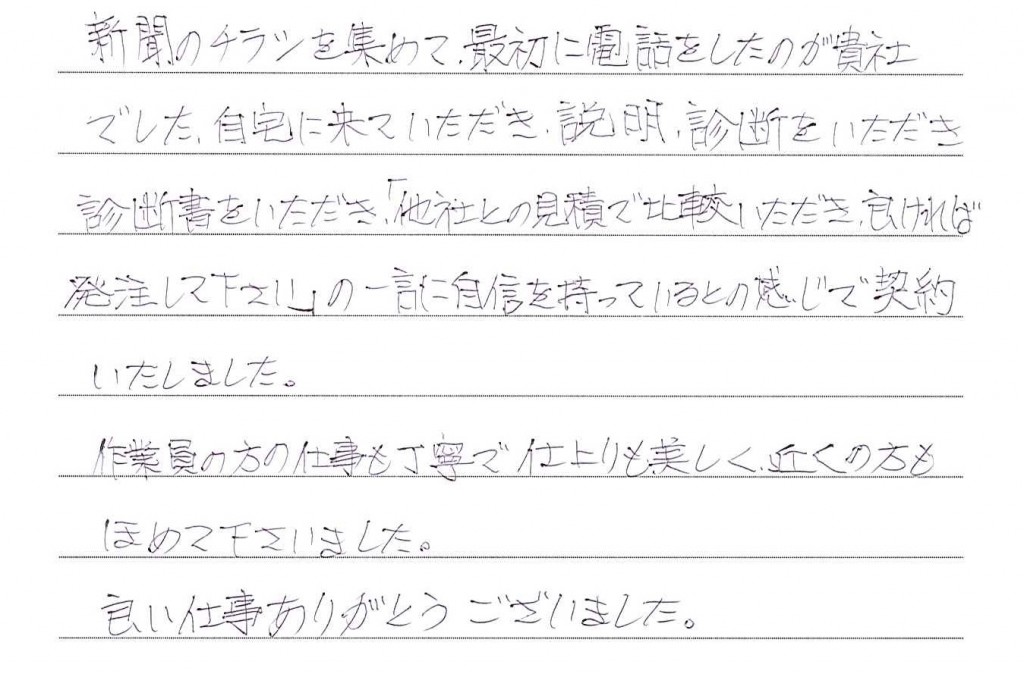 新聞のチラシを集めて、最初に電話をしたのが貴社
でした、自宅に来ていただき、説明、診断をいただき
診断書をいただき、「他社との見積で比較いただき、良ければ
発注して下さい」の一言に自信を持っているとの感じで契約
いたしました。
作業員の方の仕事も丁寧で仕上りも美しく、近くの方も
ほめて下さいました。
良い仕事ありがとうございました。